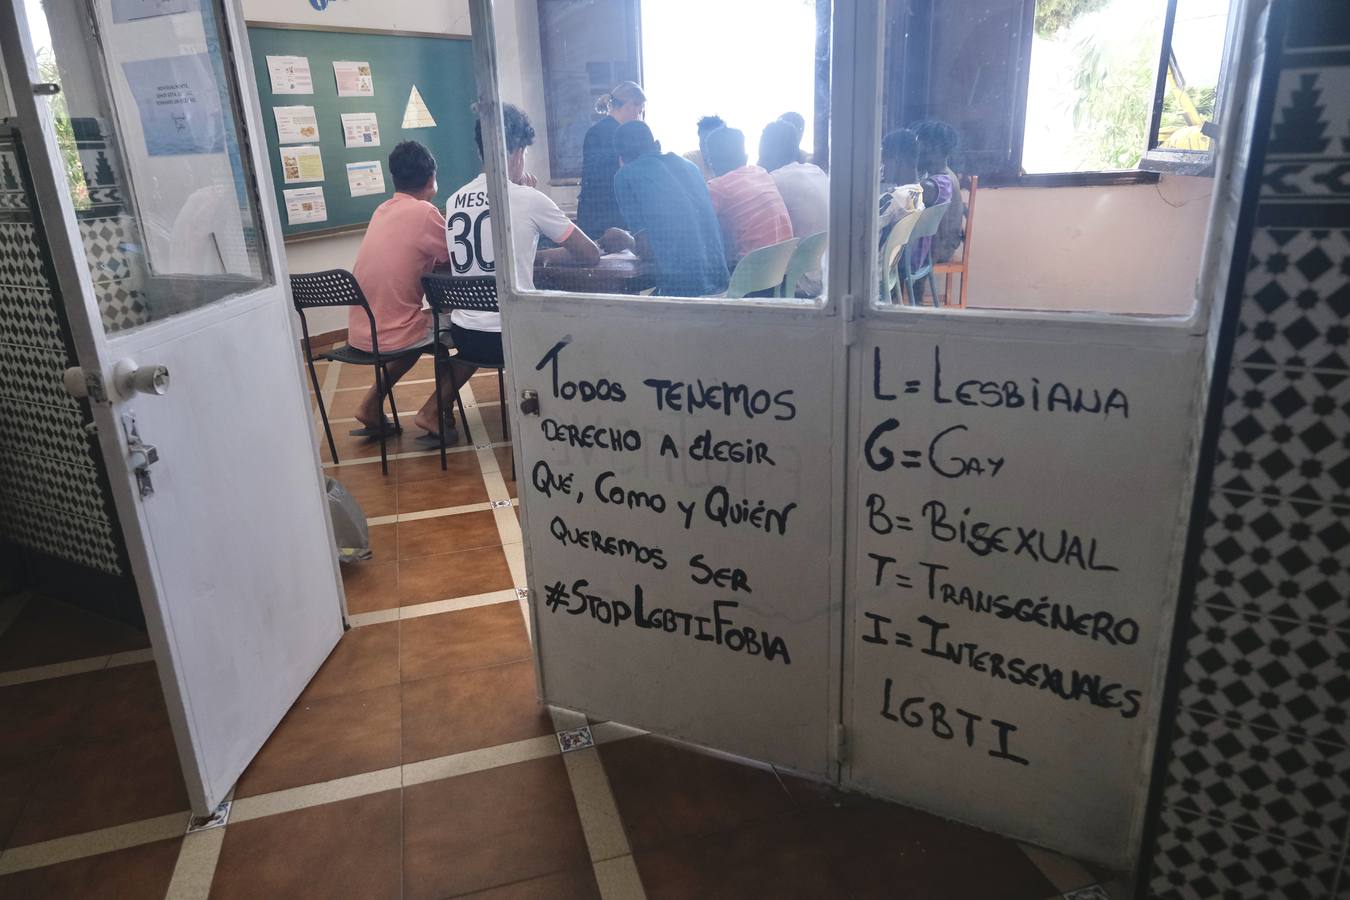 MESS
30
Todos TENEMOS
DERECHO A ELEGIR
QUÉ, Como y QuiéN
QUEREMOS SER
#STOPLGBTIFOBIA
L=LESBiANA
G=GAY
B=BiSEXUAL
T=TRANSGÉNERO
I=INTERSEXUALES
LGBTI